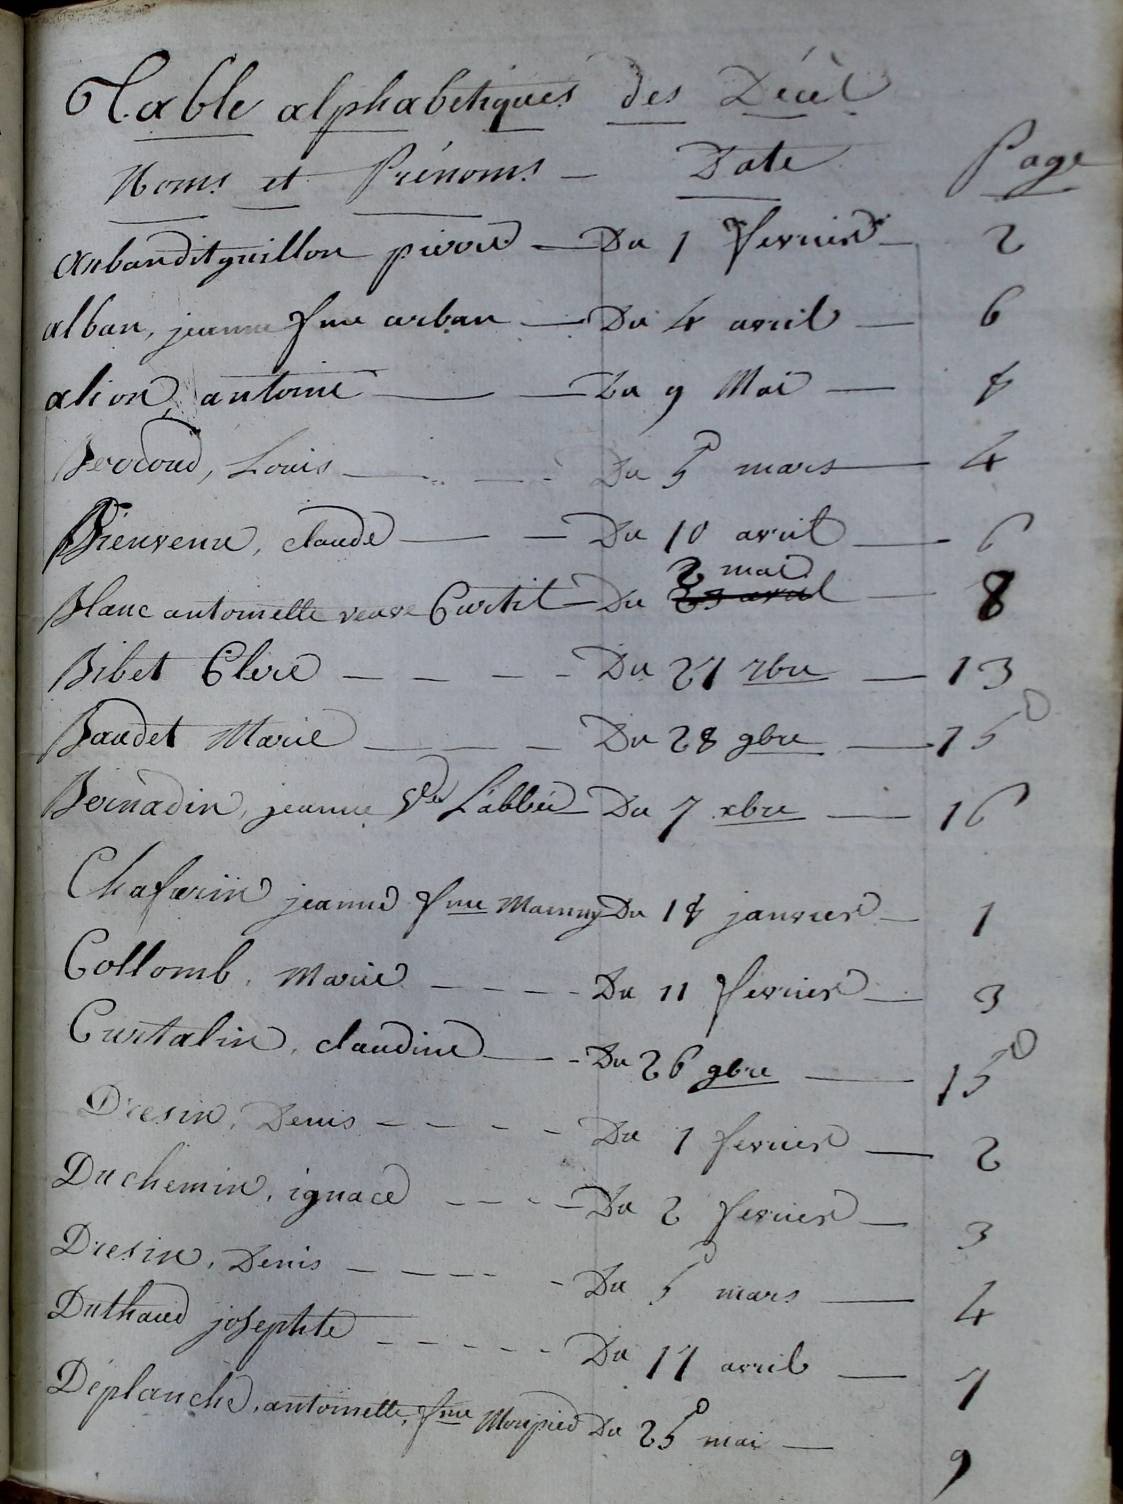 Table alphabetiques des Décès
Noms et Prénoms — Date Page
Arbanditguillon pierre — Du 1 fevrier — 2
alban, jeanne fme arban — Du 4 avril — 6
alion, antoine — Du 9 Mai — 8
Berodoud, Louis — Du 5 mars — 4
Bienvenu, claude — Du 10 avril — 6
2 mai
Blanc antoinette veuve Curtil — Du 23 avril — 8
Bibet Clere — Du 27 7bre — 13
Baudet Marie — Du 28 9bre — 15
Bernadin, jeanne Vve Labbée — Du 7 xbre — 16
Chafarin jeanne fme Mamuy Du 18 janvier — 1
Collomb, Marie — Du 11 fevrier — 3
Curtalin, claudine — Du 26 9bre — 15
Dresin, Denis — Du 1 fevrier — 2
Duchemin, ignace — Du 2 fevrier — 3
Dresin, Denis — Du 5 mars — 4
Duthaud josephte — Du 17 avril — 7
Déplanche, antoinette, fme Morpied Du 25 mai — 9